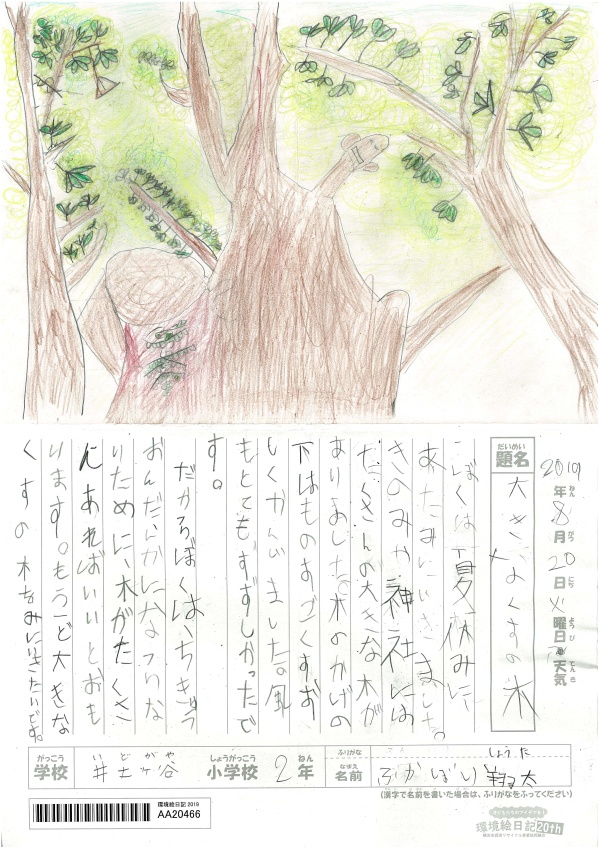 2019年8月20日火曜日 天気
ねん がつ にち よう び てん き
だいめい
題名
大きなくすの木
ぼくは夏休みに、
あたみにいきました。
きのみや神社には
たくさんの大きな木が
ありました。木のかげの
下はものすごくすずし
しくかんじました。風
もとてもすずしかったで
す。
だからぼくは、ちきゅう
おんだんかにならない
ために、木がたくさ
んあればいいとおも
います。もう一ど大きな
くすの木をみにいきたいです。
がっこう
学校
いどがや
井土ヶ谷
しょうがっこう
小学校
2
ねん
年
ふりがな
なまえ
名前
しょうた
ふかぼり 翔太
(漢字で名前を書いた場合は、ふりがなをふってください)
環境絵日記 2019
AA20466
環境絵日記 20th